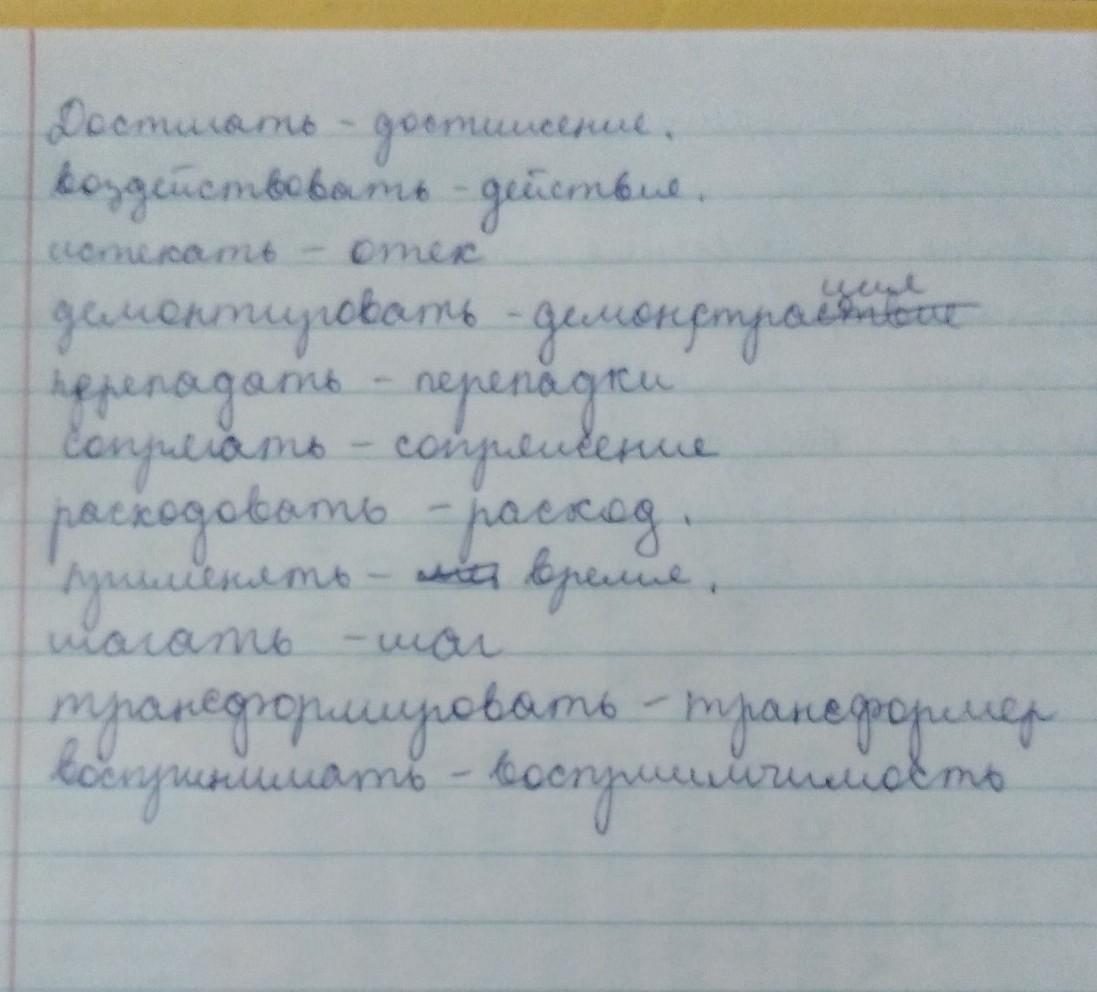 Достигать - достижение.
воздействовать - действие.
истекать - отек
демонтировать - демонстрация
перепадать - перепадки
сопрягать - сопряжение
расходовать - расход.
применять - время.
шагать - шаг
трансформировать - трансформер
воспринимать - восприимчимость